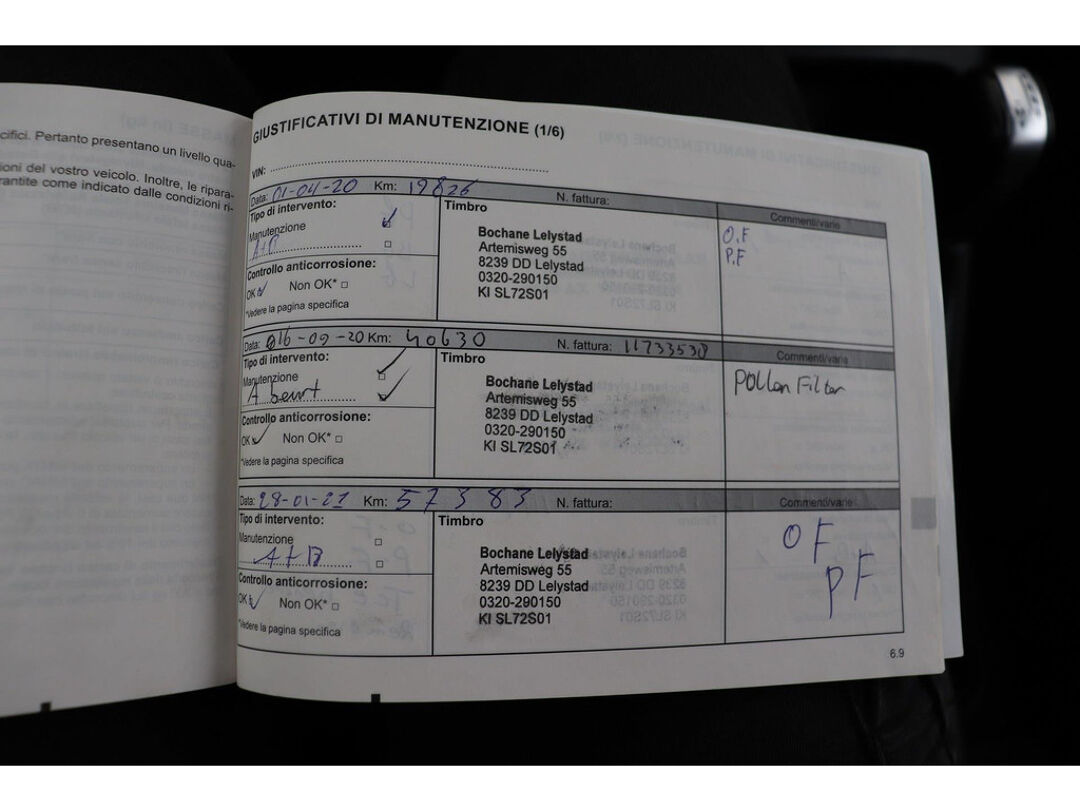 cifici. Pertanto presentano un livello qua-
ioni del vostro veicolo. Inoltre, le ripara-
rantite come indicato dalle condizioni ri-
GIUSTIFICATIVI DI MANUTENZIONE (1/6)
VIN:
Data: 01-04-20 Km: 19826 N. fattura: Commenti/varie
Tipo di intervento:
Manutenzione
A+B
Controllo anticorrosione:
OK Non OK*
*Vedere la pagina specifica
Timbro
Bochane Lelystad
Artemisweg 55
8239 DD Lelystad
0320-290150
KI SL72S01
O.F
P.F
Data: 16-09-20 Km: 40630 N. fattura: 11733538 Commenti/varie
Tipo di intervento:
Manutenzione
A beurt
Controllo anticorrosione:
OK Non OK*
*Vedere la pagina specifica
Timbro
Bochane Lelystad
Artemisweg 55
8239 DD Lelystad
0320-290150
KI SL72S01
Pollen Filter
Data: 28-01-21 Km: 57383 N. fattura: Commenti/varie
Tipo di intervento:
Manutenzione
A+B
Controllo anticorrosione:
OK Non OK*
*Vedere la pagina specifica
Timbro
Bochane Lelystad
Artemisweg 55
8239 DD Lelystad
0320-290150
KI SL72S01
OF
PF
6.9